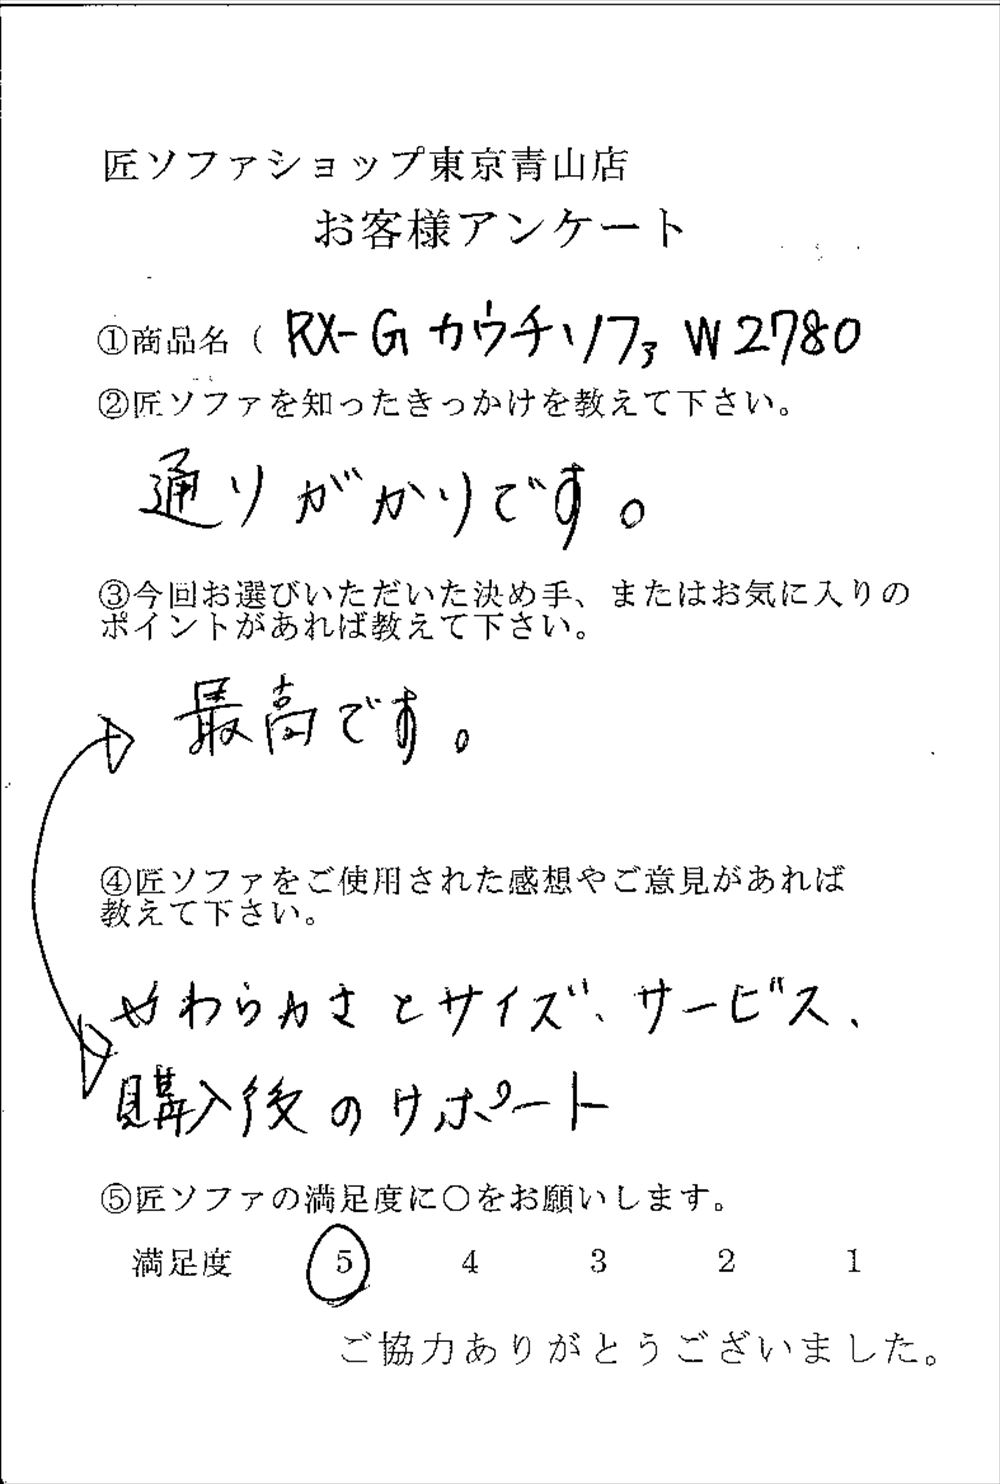 匠ソファショップ東京青山店
お客様アンケート
①商品名（ RX-G カウチソファ W2780
②匠ソファを知ったきっかけを教えて下さい。
通りがかりです。
③今回お選びいただいた決め手、またはお気に入りの
ポイントがあれば教えて下さい。
最高です。
④匠ソファをご使用された感想やご意見があれば
教えて下さい。
やわらかさとサイズ、サービス、
購入後のサポート
⑤匠ソファの満足度に〇をお願いします。
満足度 5 4 3 2 1
ご協力ありがとうございました。